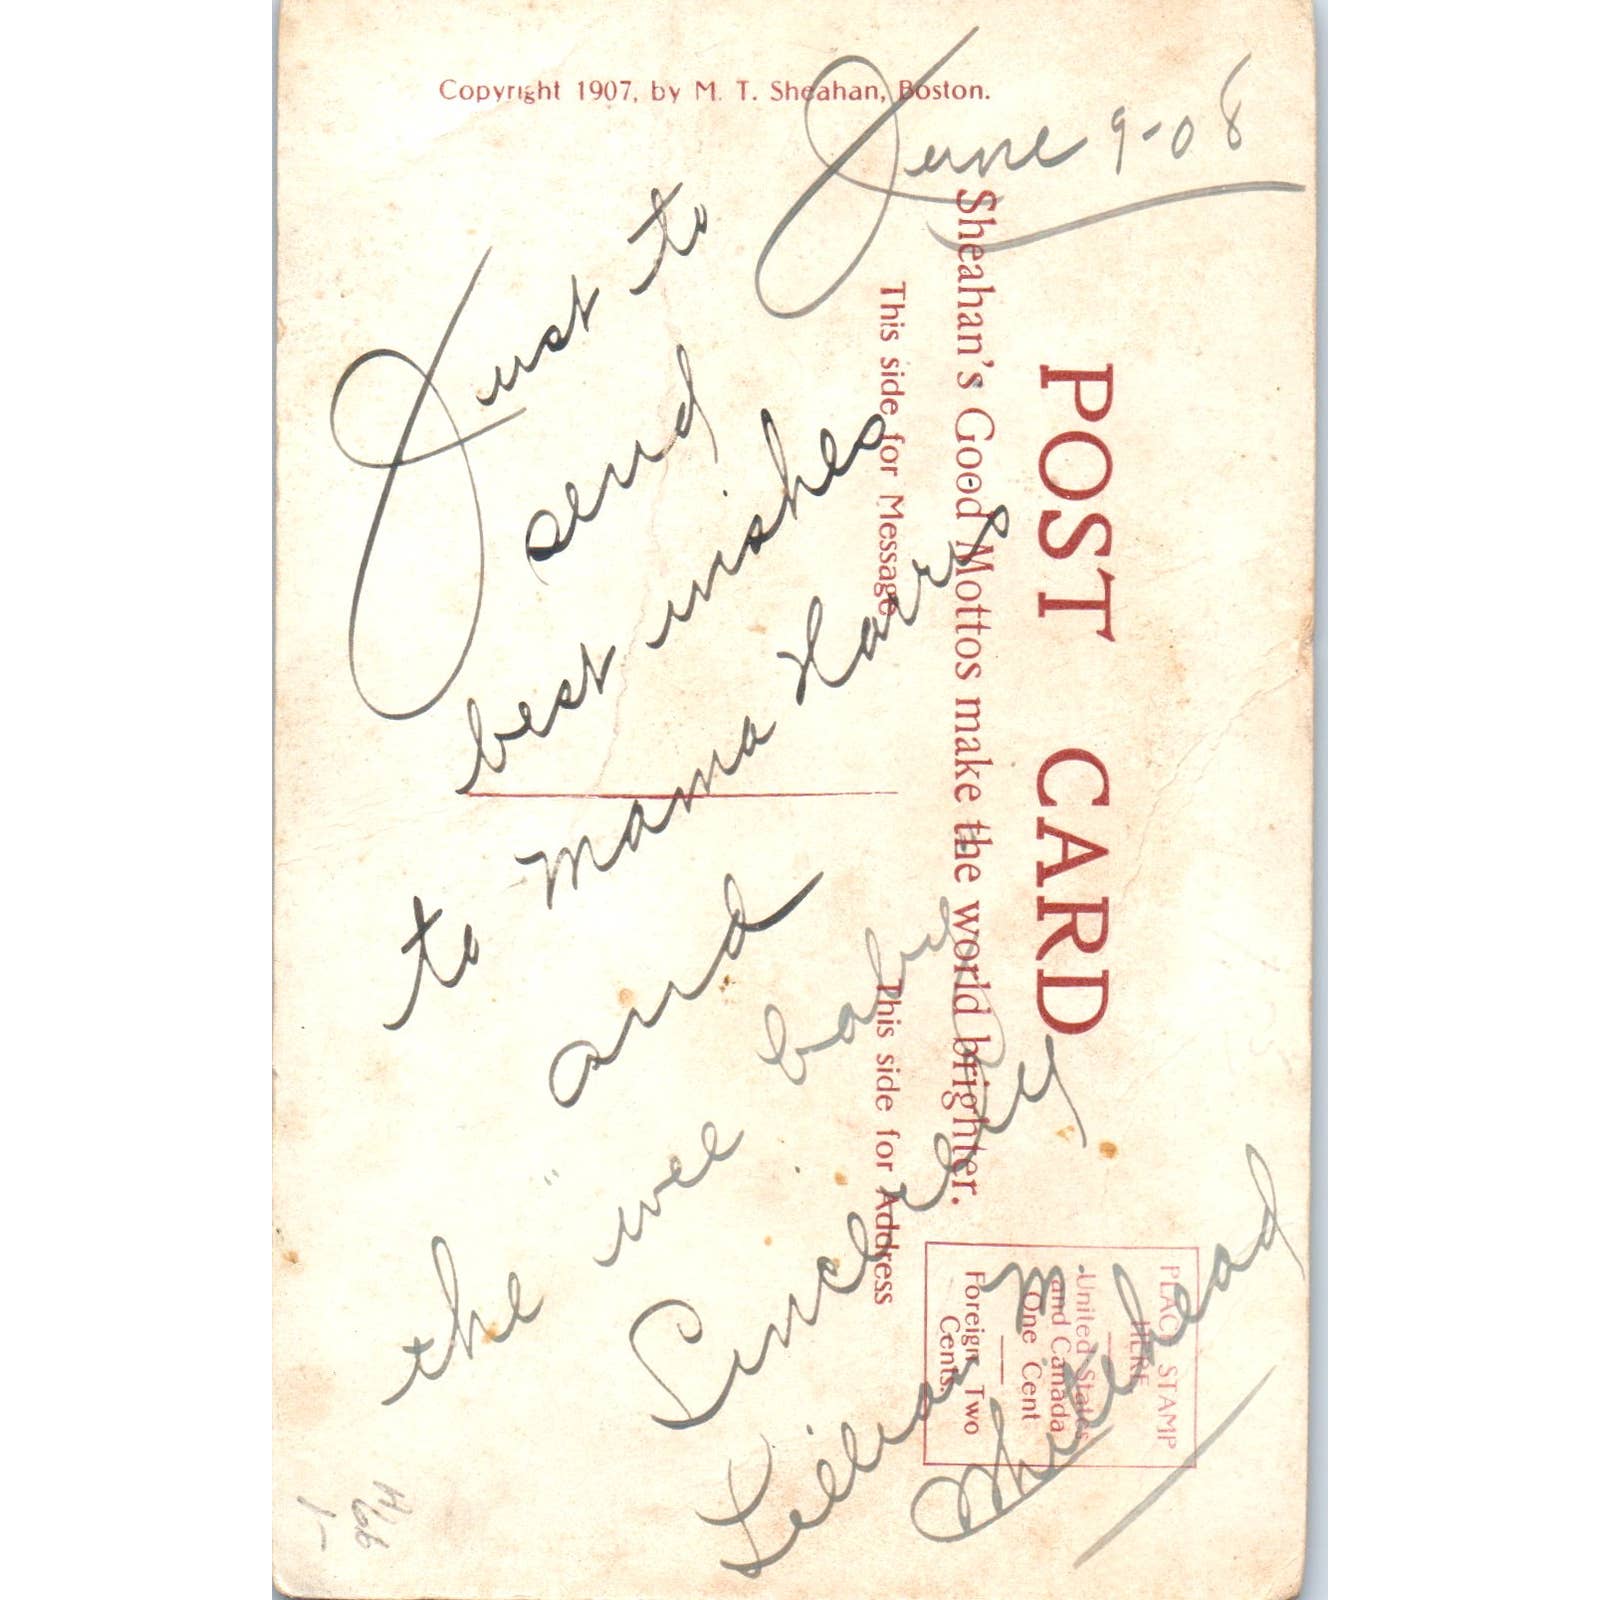 Copyright 1907, by M. T. Sheahan, Boston.
June 9-08
Just to
send
best wishes
to Mama Harris
and
the "wee baby
Sincerely
Lillian M.
Whitehead
POST CARD
Sheahan's Good Mottos make the world brighter.
This side for Message
This side for Address
PLACE STAMP
HERE
United States
and Canada
One Cent
Foreign Two
Cents.